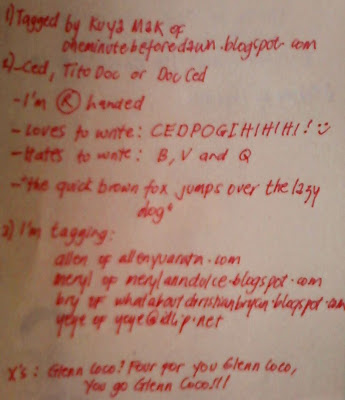 1) Tagged by Kuya Mak of
oneminutebeforedawn.blogspot.com
2) - Ced, Tito Doc or Doc Ced
- I'm R handed
- Loves to write: CEDPOGIHIHIHI! :)
- Hates to write: B, V and Q
- "the quick brown fox jumps over the lazy
dog"
3) I'm tagging:
allen of allenyuarata.com
meryl of merylanndolce.blogspot.com
bry of whataboutchristianbryan.blogspot.com
yeye of yeye@dlip.net
X's: Glenn Coco? Four for you Glenn Coco,
You go Glenn Coco!!!